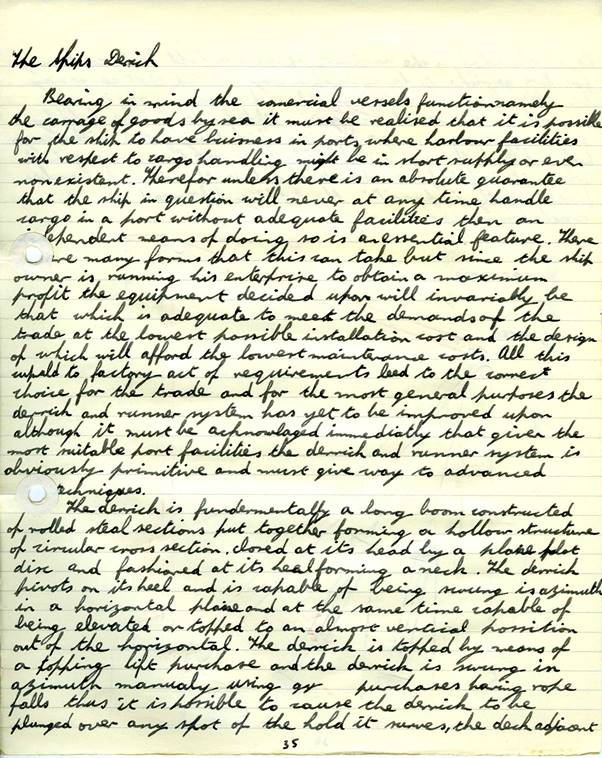 The Ships Derrick
Bearing in mind the comercial vessels function namely
the carrage of goods by sea it must be realised that it is possible
for the ship to have buisness in ports, where harbour facilities
with respect to cargo handling might be in short supply or even
nonexistent. Therefor unless there is an absolute guarantee
that the ship in question will never at any time handle
cargo in a port without adequate facilities then an
ependent means of doing so is an essential feature. There
are many forms that this can take but since the ship
owner is running his enterprise to obtain a maximum
profit the equipment decided upon will invariably be
that which is adequate to meet the demands of the
trade at the lowest possible installation cost and the design
of which will afford the lowest maintenance costs. All this
to factory act of requirements leed to the correct
choice for the trade and for the most general purposes the
derrick and runner system has yet to be improved upon
although it must be acknowlaged immediatly that given the
most suitable port facilities the derrick and runner system is
obviously primitive and must give way to advanced
techniques.
The derrick is fundermentally a long boom constructed
of rolled steal sections put together forming a hollow structure
of circular cross section, closed at its head by a plate
disc and fashioned at its heal forming a neck. The derrick
pivots on its heel and is capable of being swung is azimuth
in a horizontal plane and at the same time capable of
being elevated or topped to an almost vertical possition
out of the horizontal. The derrick is topped by means of
a topping lift purchase and the derrick is swung in
azimuth manualy using gy purchases having rope
falls thus it is possible to cause the derrick to be
plunged over any spot of the hold it serves, the deck adjacent
35